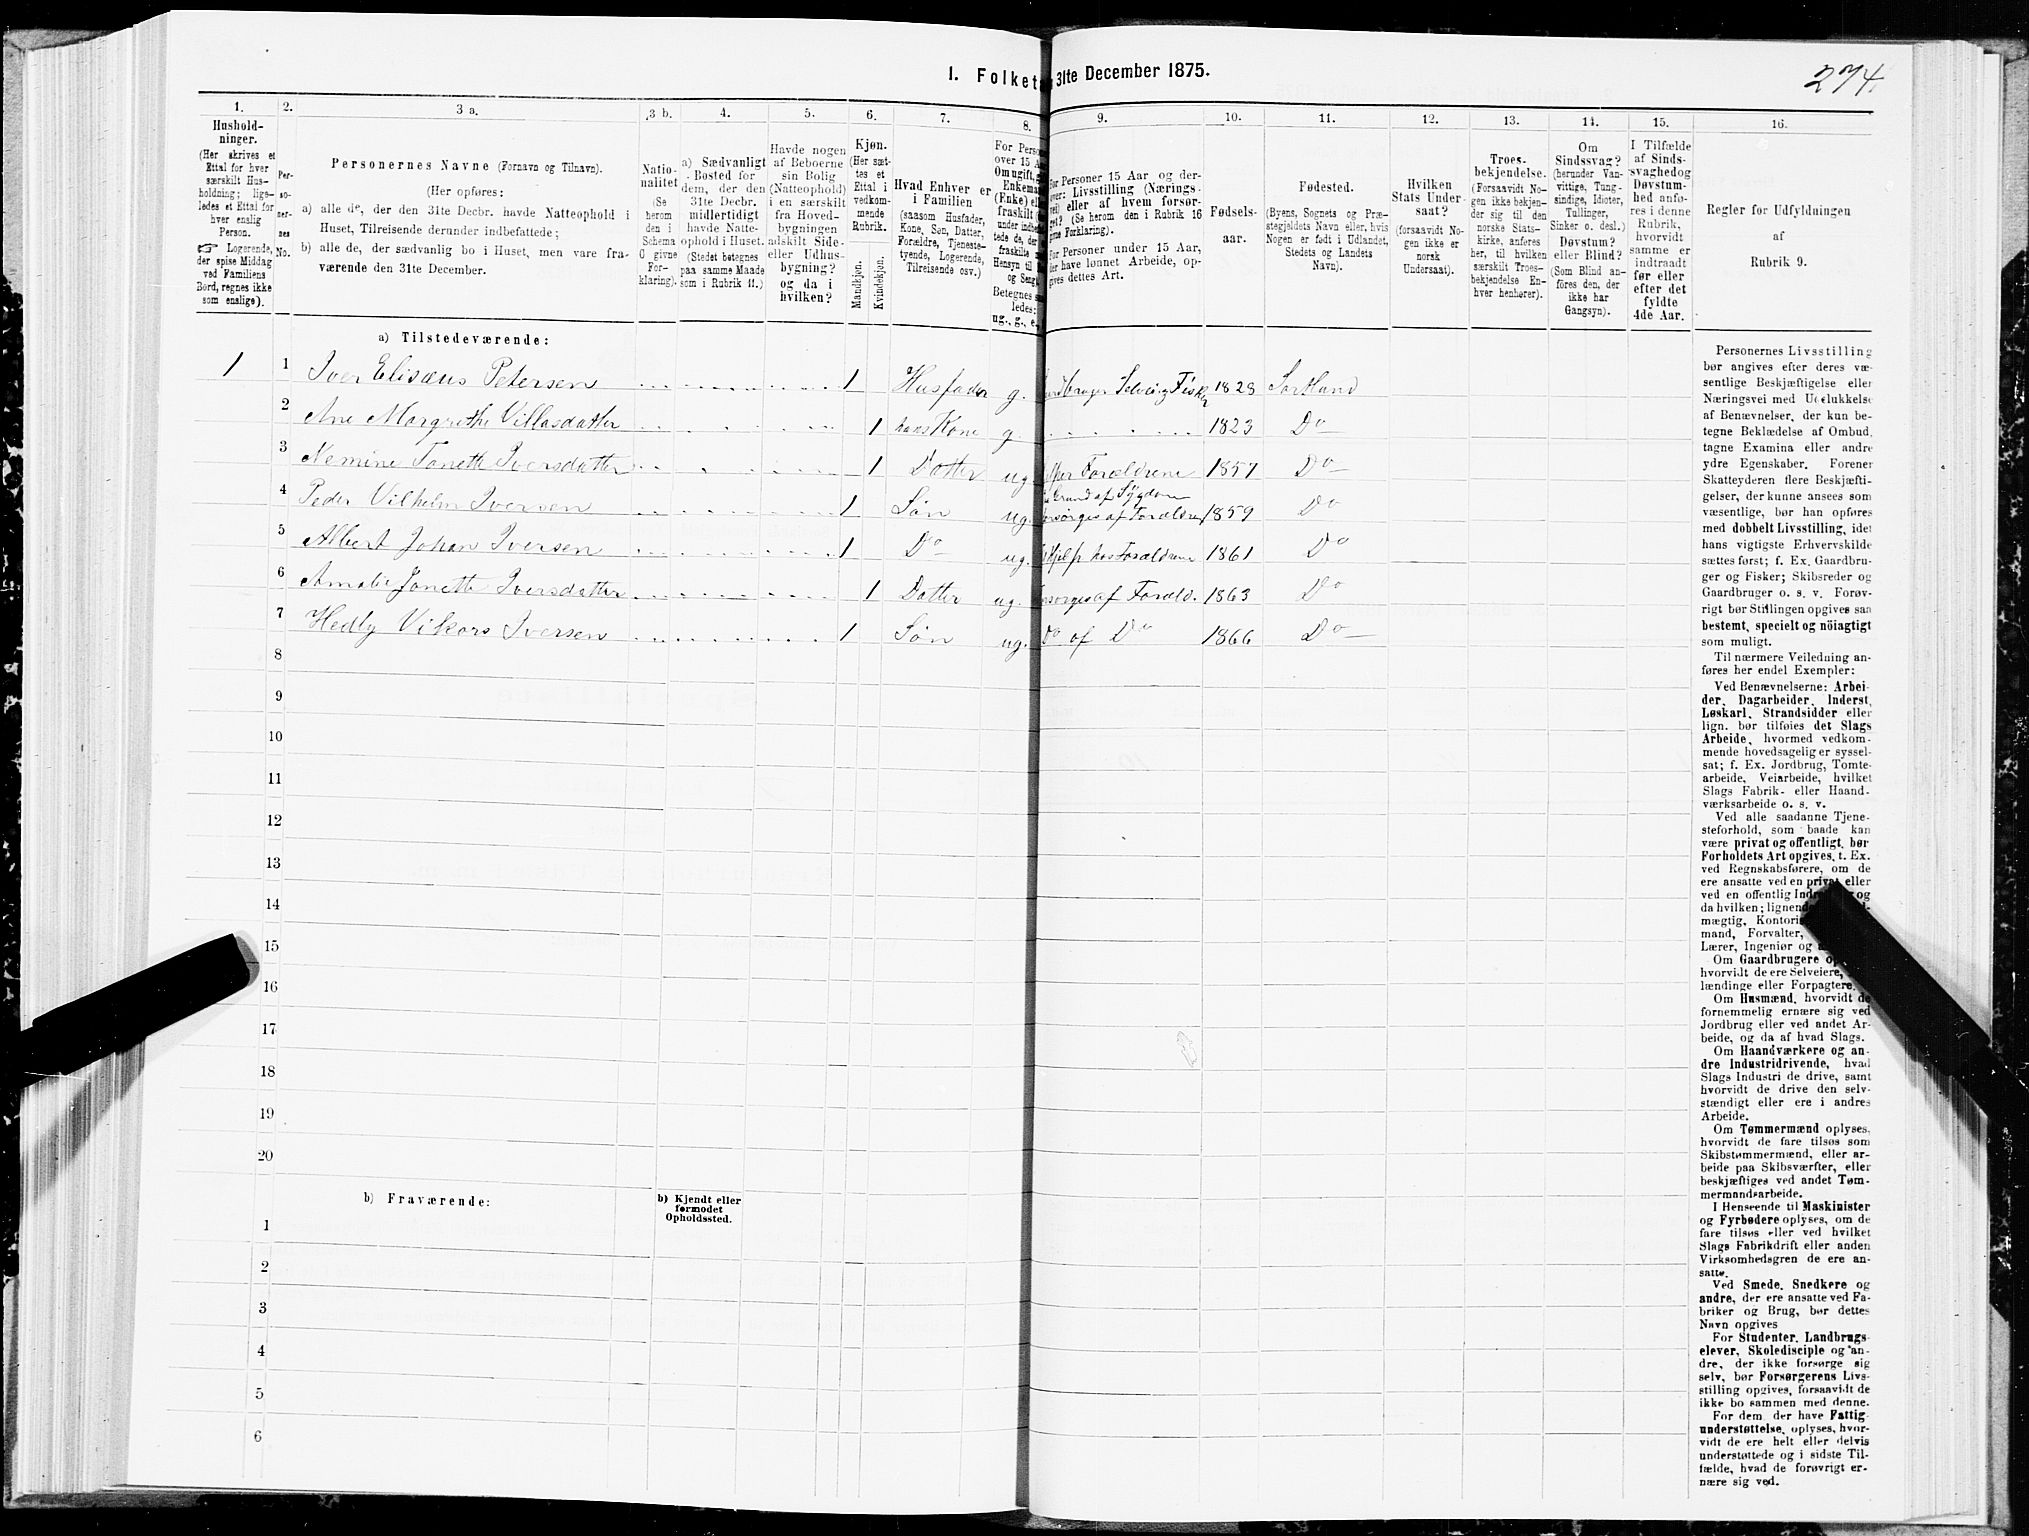 1. Folket 31te December 1875.
274.
1. 2. 3 a. 3 b. 4. 5. 6. 7. 8. 9. 10. 11. 12. 13. 14. 15. 16.
Hushold-
ninger.
(Her skrives et
Ettal for hver
særskilt Hus-
holdning; lige-
ledes et Ettal for
hver enslig
Person.
☞ Logerende,
der spise Middag
ved Familiens
Bord, regnes ikke
som enslige).
Per-
so-
ner-
nes
No.
Personernes Navne (Fornavn og Tilnavn).
(Her opføres:
a) alle de, der den 31te Decbr. havde Natteophold i
Huset, Tilreisende derunder indbefattede;
b) alle de, der sædvanlig bo i Huset, men vare fra-
værende den 31te December.
Natio-
nalitet
(Se
herom
den i
Schema
O givne
For-
klaring).
a) Sædvanligt
Bosted for
dem, der den
31te Decbr.
midlertidigt
havde Natte-
ophold i Huset.
(Stedet betegnes
paa samme Maade
som i Rubrik 11.)
Havde nogen
af Beboerne
sin Bolig
(Natteophold)
i en særskilt
fra Hoved-
bygningen
adskilt Side-
eller Udhus-
bygning?
og da i
hvilken?
Kjøn.
(Her sæt-
tes et
Ettal i
vedkom-
mende
Rubrik.
Mandkjøn.
Kvindekjøn.
Hvad Enhver er
i Familien
(saasom Husfader,
Kone, Søn, Datter,
Forældre, Tjeneste-
tyende, Logerende,
Tilreisende osv.)
For Perso
over 15 A
Om ugift, g
Enkema
(Enke) el
fraskilt
under indb
tede de,
fraskilte
Hensyn til
og Seng
Betegnes s
ledes:
ug., g., e.,
For Personer 15 Aar og der-
over: Livsstilling (Nærings-
vei) eller af hvem forsør-
get? (Se herom den i Rubrik 16
givne Forklaring).
For Personer under 15 Aar,
der have lønnet Arbeide, op-
gives dettes Art.
Fødsels-
aar.
Fødested.
(Byens, Sognets og Præ-
stegjeldets Navn eller, hvis
Nogen er født i Udlandet,
Stedets og Landets
Navn).
Hvilken
Stats Under-
saat?
(forsaavidt No-
gen ikke er
norsk
Undersaat).
Troes-
bekjendelse.
(Forsaavidt No-
gen ikke bekjen-
der sig til den
norske Stats-
kirke, anføres
her, til hvilken
særskilt Troes-
bekjendelse En-
hver henhører).
Om
Sindssvag?
(herunder Van-
vittige, Tung-
sindige, Idioter,
Tullinger,
Sinker o. desl.)
Døvstum?
eller Blind?
(Som Blind an-
føres den, der
ikke har
Gangsyn).
I Tilfælde
af Sinds-
svaghedog
Døvstum-
hed anfø-
res i denne
Rubrik,
hvorvidt
samme er
indtraadt
før eller
efter det
fyldte
4de Aar.
Regler for Udfyldningen
af
Rubrik 9.
a) Tilstedeværende:
1 1 Iver Elisæus Petersen 1 Husfader g. bruger Selveier Fisker 1828 Sortland
2 Ane Margrethe Villasdatter 1 hans Kone g. 1823 Do
3 Nemine Tonette Iversdatter 1 Datter ug. Forældrene 1857 Do
4 Peder Vilhelm Iversen 1 Søn ug. Grund af Sygdom
forsørges af Forældrene 1859 Do
5 Albert Johan Iversen 1 Do ug. Hjelp hos Forældrene 1861 Do
6 Amalie Janette Iversdatter 1 Datter ug. forsørges af Foræld. 1863 Do
7 Hedly Vikors Iversen 1 Søn ug. Do af Do 1866 Do
8
9
10
11
12
13
14
15
16
17
18
19
20
b) Fraværende:
b) Kjendt eller
formodet
Opholdssted.
1
2
3
4
5
6
Personernes Livsstilling
bør angives efter deres væ-
sentlige Beskjæftigelse eller
Næringsvei med Udelukkelse
af Benævnelser, der kun be-
tegne Beklædelse af Ombud,
tagne Examina eller andre
ydre Egenskaber. Forener
Skatteyderen flere Beskjæfti-
gelser, der kunne ansees som
væsentlige, bør han opføres
med dobbelt Livsstilling, idet
hans vigtigste Erhvervskilde
sættes først; f. Ex. Gaardbru-
ger og Fisker; Skibsreder og
Gaardbruger o. s. v. Forøv-
rigt bør Stillingen opgives saa
bestemt, specielt og nöiagtigt
som muligt.
Til nærmere Veiledning an-
føres her endel Exempler:
Ved Benævnelserne: Arbei-
der, Dagarbeider, Inderst,
Løskarl, Strandsidder eller
lign. bør tilføies det Slags
Arbeide, hvormed vedkom-
mende hovedsagelig er syssel-
sat; f. Ex. Jordbrug, Tomte-
arbeide, Veiarbeide, hvilket
Slags Fabrik- eller Haand-
værksarbeide o. s. v.
Ved alle saadanne Tjene-
steforhold, som baade kan
være privat og offentligt, bør
Forholdets Art opgives, t. Ex.
ved Regnskabsførere, om de
ere ansatte ved en privat eller
ved en offentlig Indr og
da hvilken; lignende
mægtig, Kontoris
mand, Forvalter,
Lærer, Ingeniør og
Om Gaardbrugere op
hvorvidt de ere Selveiere,
lændinge eller Forpagtere.
Om Husmænd, hvorvidt de
fornemmelig ernære sig ved
Jordbrug eller ved andet Ar-
beide, og da af hvad Slags.
Om Haandværkere og an-
dre Industridrivende, hvad
Slags Industri de drive, samt
hvorvidt de drive den selv-
stændigt eller ere i andres
Arbeide.
Om Tømmermænd oplyses,
hvorvidt de fare tilsøs som
Skibstømmermænd, eller ar-
beide paa Skibsværfter, eller
beskjæftiges ved andet Tøm-
mermandsarbeide.
I Henseende til Maskinister
og Fyrbødere oplyses, om de
fare tilsøs eller ved hvilket
Slags Fabrikdrift eller anden
Virksomhedsgren de ere an-
satte.
Ved Smede, Snedkere og
andre, der ere ansatte ved Fa-
briker og Brug, bør dettes
Navn opgives
For Studenter, Landbrugs-
elever, Skoledisciple og an-
dre, der ikke forsørge sig
selv, bør Forsørgerens Livs-
stilling opgives, forsaavidt de
ikke bo sammen med denne.
For dem, der have Fattig-
understøttelse, oplyses, hvor-
vidt de ere helt eller delvis
understøttede og i sidste Til-
fælde, hvad de forøvrigt er-
nære sig ved.